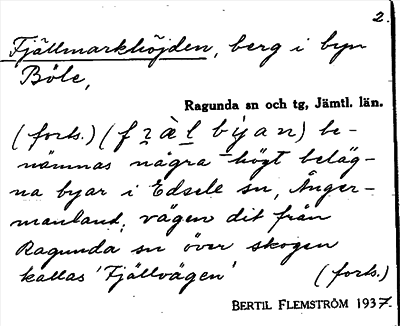 2.
Fjällmarkhöjden, berg i byn
Böle,
Ragunda sn och tg, Jämtl. län.
(forts.) (fɿàl býan) be-
nämnas några högt beläg-
na byar i Edsele sn, Ånger-
manland; vägen dit från
Ragunda sn över skogen
kallas 'Fjällvägen' (forts.)
BERTIL FLEMSTRÖM 1937.